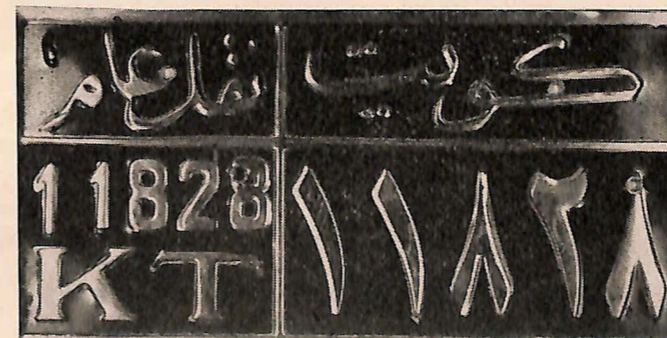 كويت نقل عام
11828 ١١٨٢٨
KT